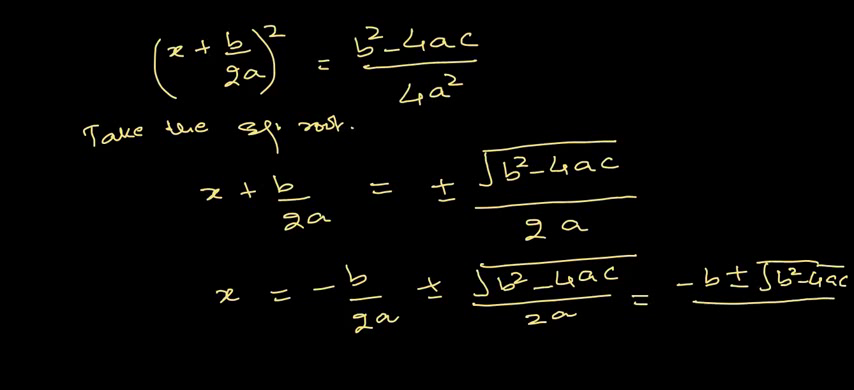 (x + b/2a)² = b²-4ac/4a²
Take the sq. root.
x + b/2a = ± √b²-4ac/2a
x = -b/2a ± √b²-4ac/2a = -b ± √b²-4ac